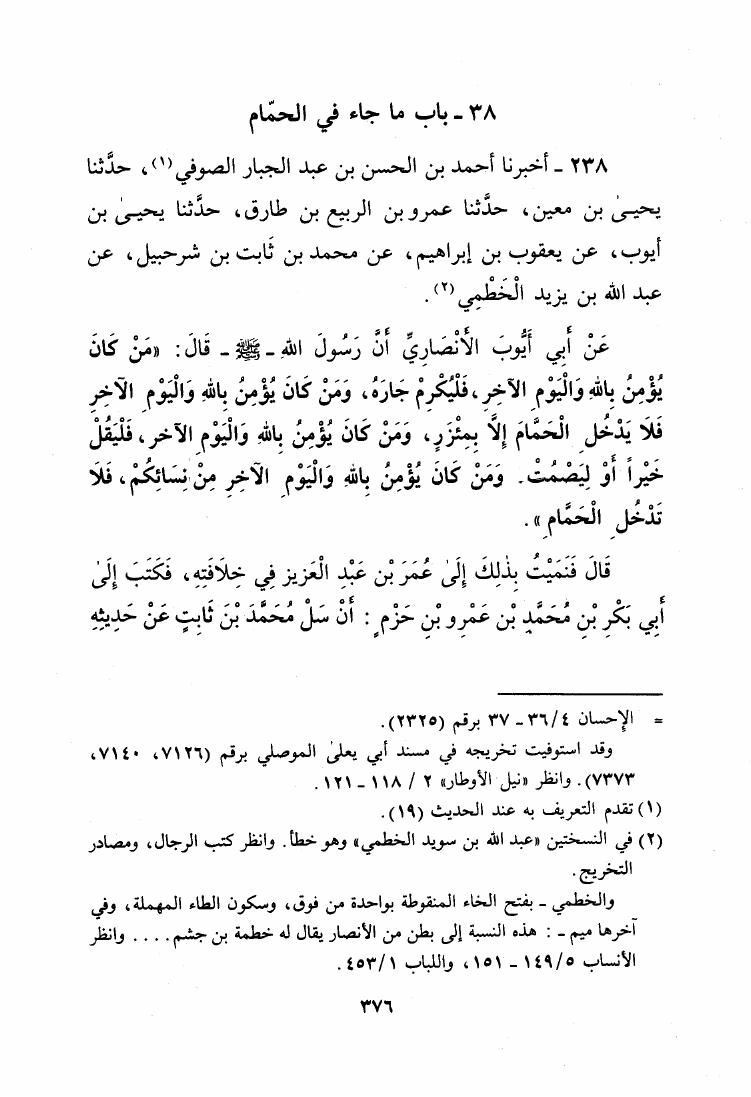 ٣٨ - باب ما جاء في الحمّام
٢٣٨ - أخبرنا أحمد بن الحسن بن عبد الجبار الصوفي(١)، حدَّثنا
يحيىٰ بن معين، حدَّثنا عمرو بن الربيع بن طارق، حدَّثنا يحيىٰ بن
أيوب، عن يعقوب بن إبراهيم، عن محمد بن ثَابت بن شرحبيل، عن
عبد الله بن يزيد الْخَطْمِي(٢).
عَنْ أَبِي أَيُّوبَ الأَنْصَارِيِّ أَنَّ رَسُولَ اللهِ - ﷺ - قَالَ: «مَنْ كَانَ
يُؤْمِنُ بِاللهِ وَالْيَوْمِ الآخِرِ، فَلْيُكْرِمْ جَارَهُ، وَمَنْ كَانَ يُؤْمِنُ بِاللهِ وَالْيَوْمِ الآخِرِ
فَلَا يَدْخُلِ الْحَمَّامَ إِلَّا بِمِئْزَرٍ، وَمَنْ كَانَ يُؤْمِنُ بِاللهِ وَالْيَوْمِ الآخرِ، فَلْيَقُلْ
خَيْراً أَوْ لِيَصْمُتْ. وَمَنْ كَانَ يُؤْمِنُ بِاللهِ وَالْيَوْمِ الآخِرِ مِنْ نِسَائِكُمْ، فَلَا
تَدْخُلِ الْحَمَّامِ».
قَالَ فَنَمَيْتُ بِذٰلِكَ إِلَىٰ عُمَرَ بْنِ عَبْدِ الْعَزِيزِ فِي خِلَافَتِهِ، فَكَتَبَ إِلَىٰ
أَبِي بَكْرِ بْنِ مُحَمَّدِ بْنِ عَمْرِو بْنِ حَزْمٍ: أَنْ سَلْ مُحَمَّدَ بْنَ ثَابِتٍ عَنْ حَدِيثِهِ
= الإحسان ٣٦/٤ - ٣٧ برقم (٢٣٢٥).
وقد استوفيت تخريجه في مسند أبي يعلىٰ الموصلي برقم (٧١٢٦، ٧١٤٠،
٧٣٧٣). وانظر «نيل الأوطار» ٢ / ١١٨ - ١٢١.
(١) تقدم التعريف به عند الحديث (١٩).
(٢) في النسختين «عبد الله بن سويد الخطمي» وهو خطأ. وانظر كتب الرجال، ومصادر
التخريج.
والخطمي - بفتح الخاء المنقوطة بواحدة من فوق، وسكون الطاء المهملة، وفي
آخرها ميم - : هذه النسبة إلى بطن من الأنصار يقال له خطمة بن جشم.... وانظر
الأنساب ١٤٩/٥ - ١٥١، واللباب ٤٥٣/١.
٣٧٦